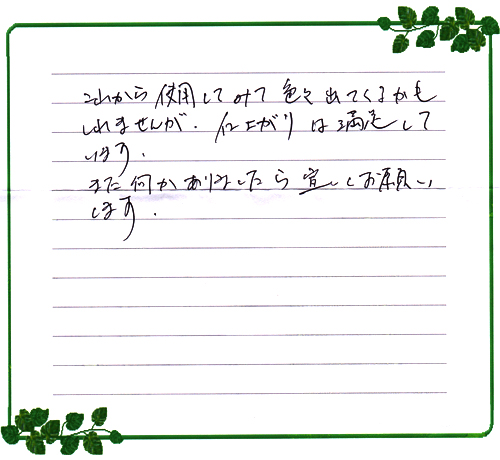 これから使用してみて色々出てくるかも
しれませんが、仕上がりは満足して
います.
また何かありましたら宜しくお願い
します.